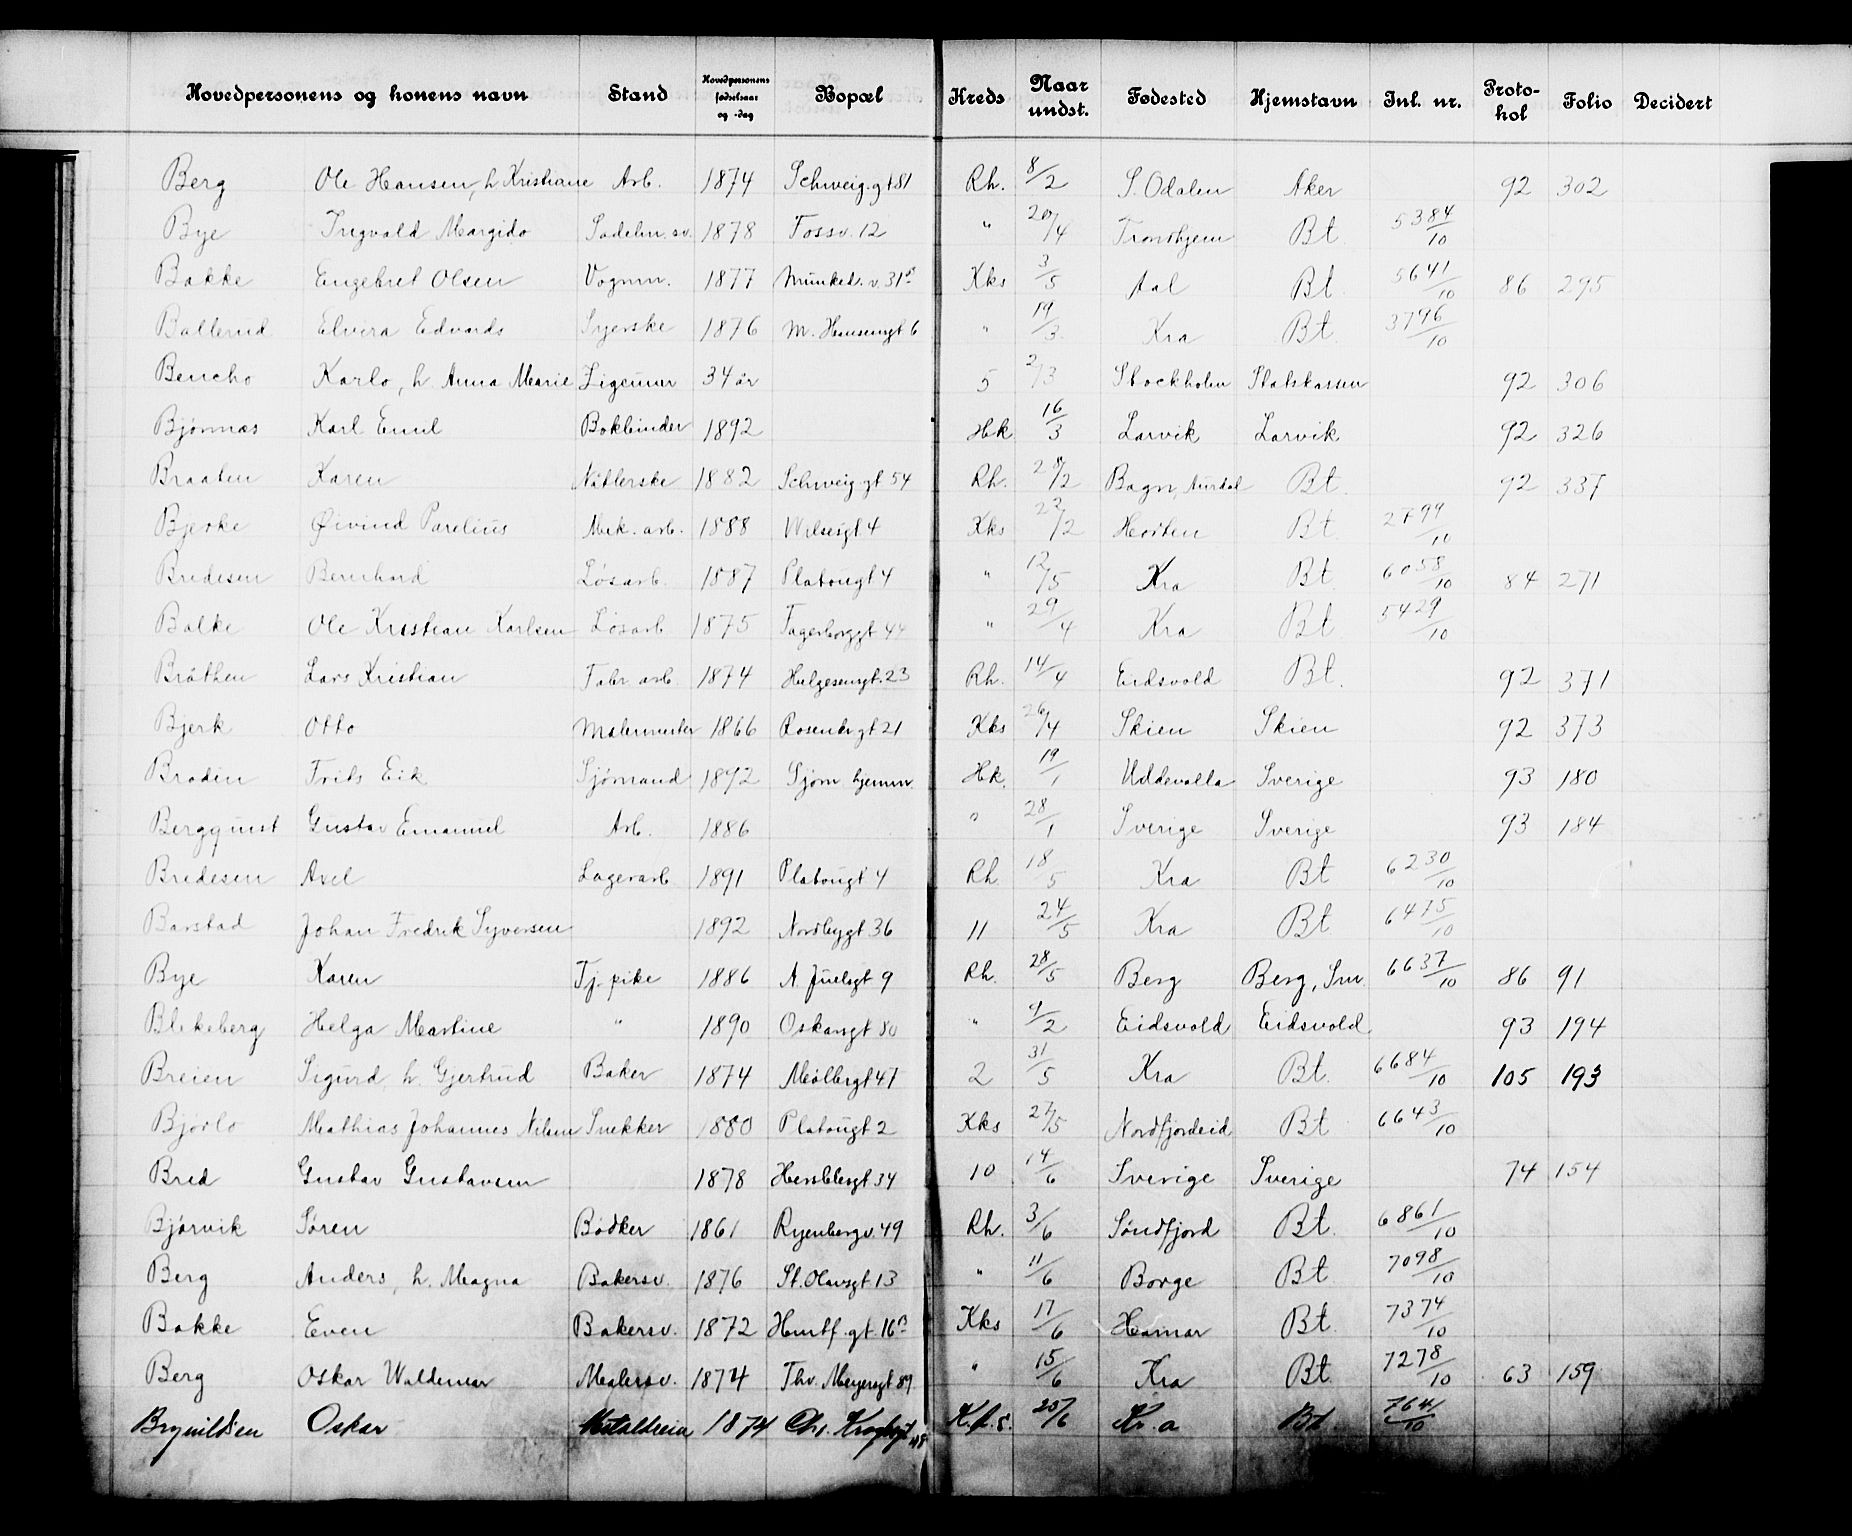 Hovedpersonens og konens navn Stand Hovedpersonens fødselsaar og -dag Bopæl Kreds Naar undst. Fødested Hjemstavn Inl. nr. Protokol Folio Decidert
Berg Ole Hansen, h Kristiane Arb. 1874 Schweig.gt 81 Rh. 8/2 S. Odalen Aker 92 302
Bye Ingvald Margido Sadelm.sv. 1878 Fossv. 12 " 20/4 Trondhjem Bt. 5384/10
Bakke Engebret Olsen Vognm. 1877 Munked.v. 31 Kks 3/5 Aal Bt. 5641/10 86 295
Ballerud Elvira Edvards Syerske 1876 M. Hansensgt 6 " 19/3 Kra Bt. 3796/10
Bencho Karlo, h. Anna Marie Zigeuner 34 år 5 2/3 Stockholm Statskassen 92 306
Bjørnnæs Karl Emil Bokbinder 1892 Hk 16/3 Larvik Larvik 92 326
Braaten Karen Nåtlerske 1882 Schweig.gt 54 Rh. 28/2 Bagn, Aurdal Bt. 92 337
Bjerke Øivind Parelius Mek. arb. 1888 Wilsesgt 4 Kks 22/2 Horten Bt 2799/10
Bredesen Bernhard Løsarb. 1887 Platougt 4 " 12/5 Kra Bt. 6058/10 84 271
Balke Ole Kristian Karlsen Løsarb 1875 Fagerborggt 44 " 29/4 Kra Bt 5429/10
Bråthen Lars Kristian Fabr arb. 1874 Helgesensgt. 23 Rh. 14/4 Eidsvold Bt. 92 371
Bjerk Otto Malermester 1866 Rosenbr gt 21 Kks 26/4 Skien Skien 92 373
Brodin Frits Eik Sjømand 1892 Sjøm hjemm. Hk. 19/1 Uddevalla Sverige 93 180
Bergquist Gustav Emanuel Arb. 1886 " 28/1 Sverige Sverige 93 184
Bredesen Axel Lagerarb 1891 Platougt 4 Rh. 18/5 Kra Bt 6230/10
Barstad Johan Fredrik Syversen 1892 Nordbygt 36 11 24/5 Kra Bt. 6475/10
Bye Karen Tj. pike 1886 A. Juelsgt 9 Rh. 28/5 Berg Berg, Sm. 6637/10 86 91
Blekeberg Helga Martine " 1890 Oskarsgt 80 " 9/2 Eidsvold Eidsvold 93 194
Breien Sigurd, h. Gjertrud Baker 1874 Møllergt 47 2 31/5 Kra Bt. 6684/10 105 193
Bjørlo Mathias Johannes Nilsen Snekker 1880 Platougt 2 Kks 27/5 Nordfjordeid Bt 6643/10
Bred Gustav Gustavsen 1878 Herslebsgt 34 10 14/6 Sverige Sverige 74 154
Bjørvik Søren Bødker 1861 Ryenbergv. 49 Rh. 3/6 Søndfjord Bt. 6861/10
Berg Anders, h. Magna Bakersv. 1876 St. Olavsgt. 13 " 11/6 Borge Bt. 7098/10
Bakke Even Bakersv. 1872 Huitf. gt. 16B Kks 17/6 Hamar Bt 7374/10
Berg Oskar Waldemar Malersv. 1874 Thv. Meyersgt 89 " 15/6 Kra Bt. 7278/10 63 159
Brynildsen Oskar Metaldreier 1874 Chr. Kroghsgt 48 K.k.s. 25/6 Kr.a Bt. 7641/10